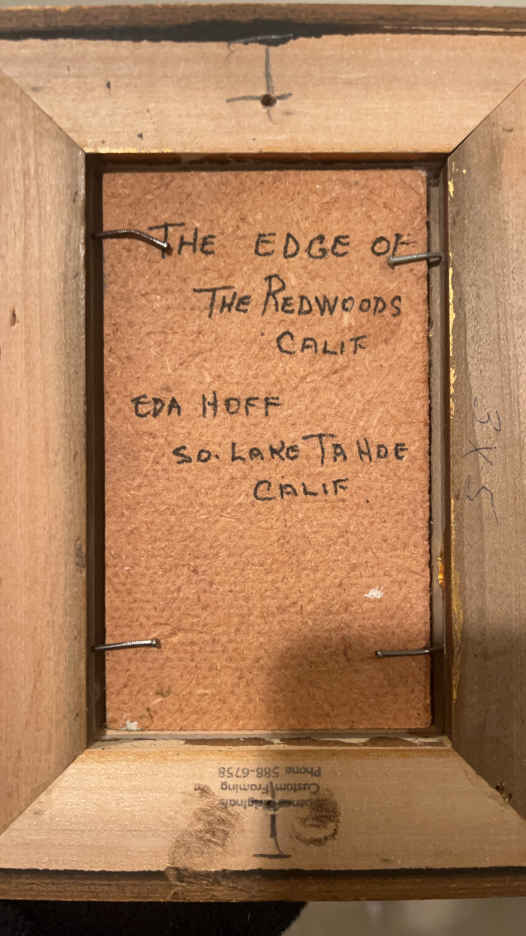 THE EDGE OF
THE REDWOODS
CALIF
EDA HOFF
SO. LAKE TAHOE
CALIF.
3X5
Originals
Custom Framing
Phone 588-6758